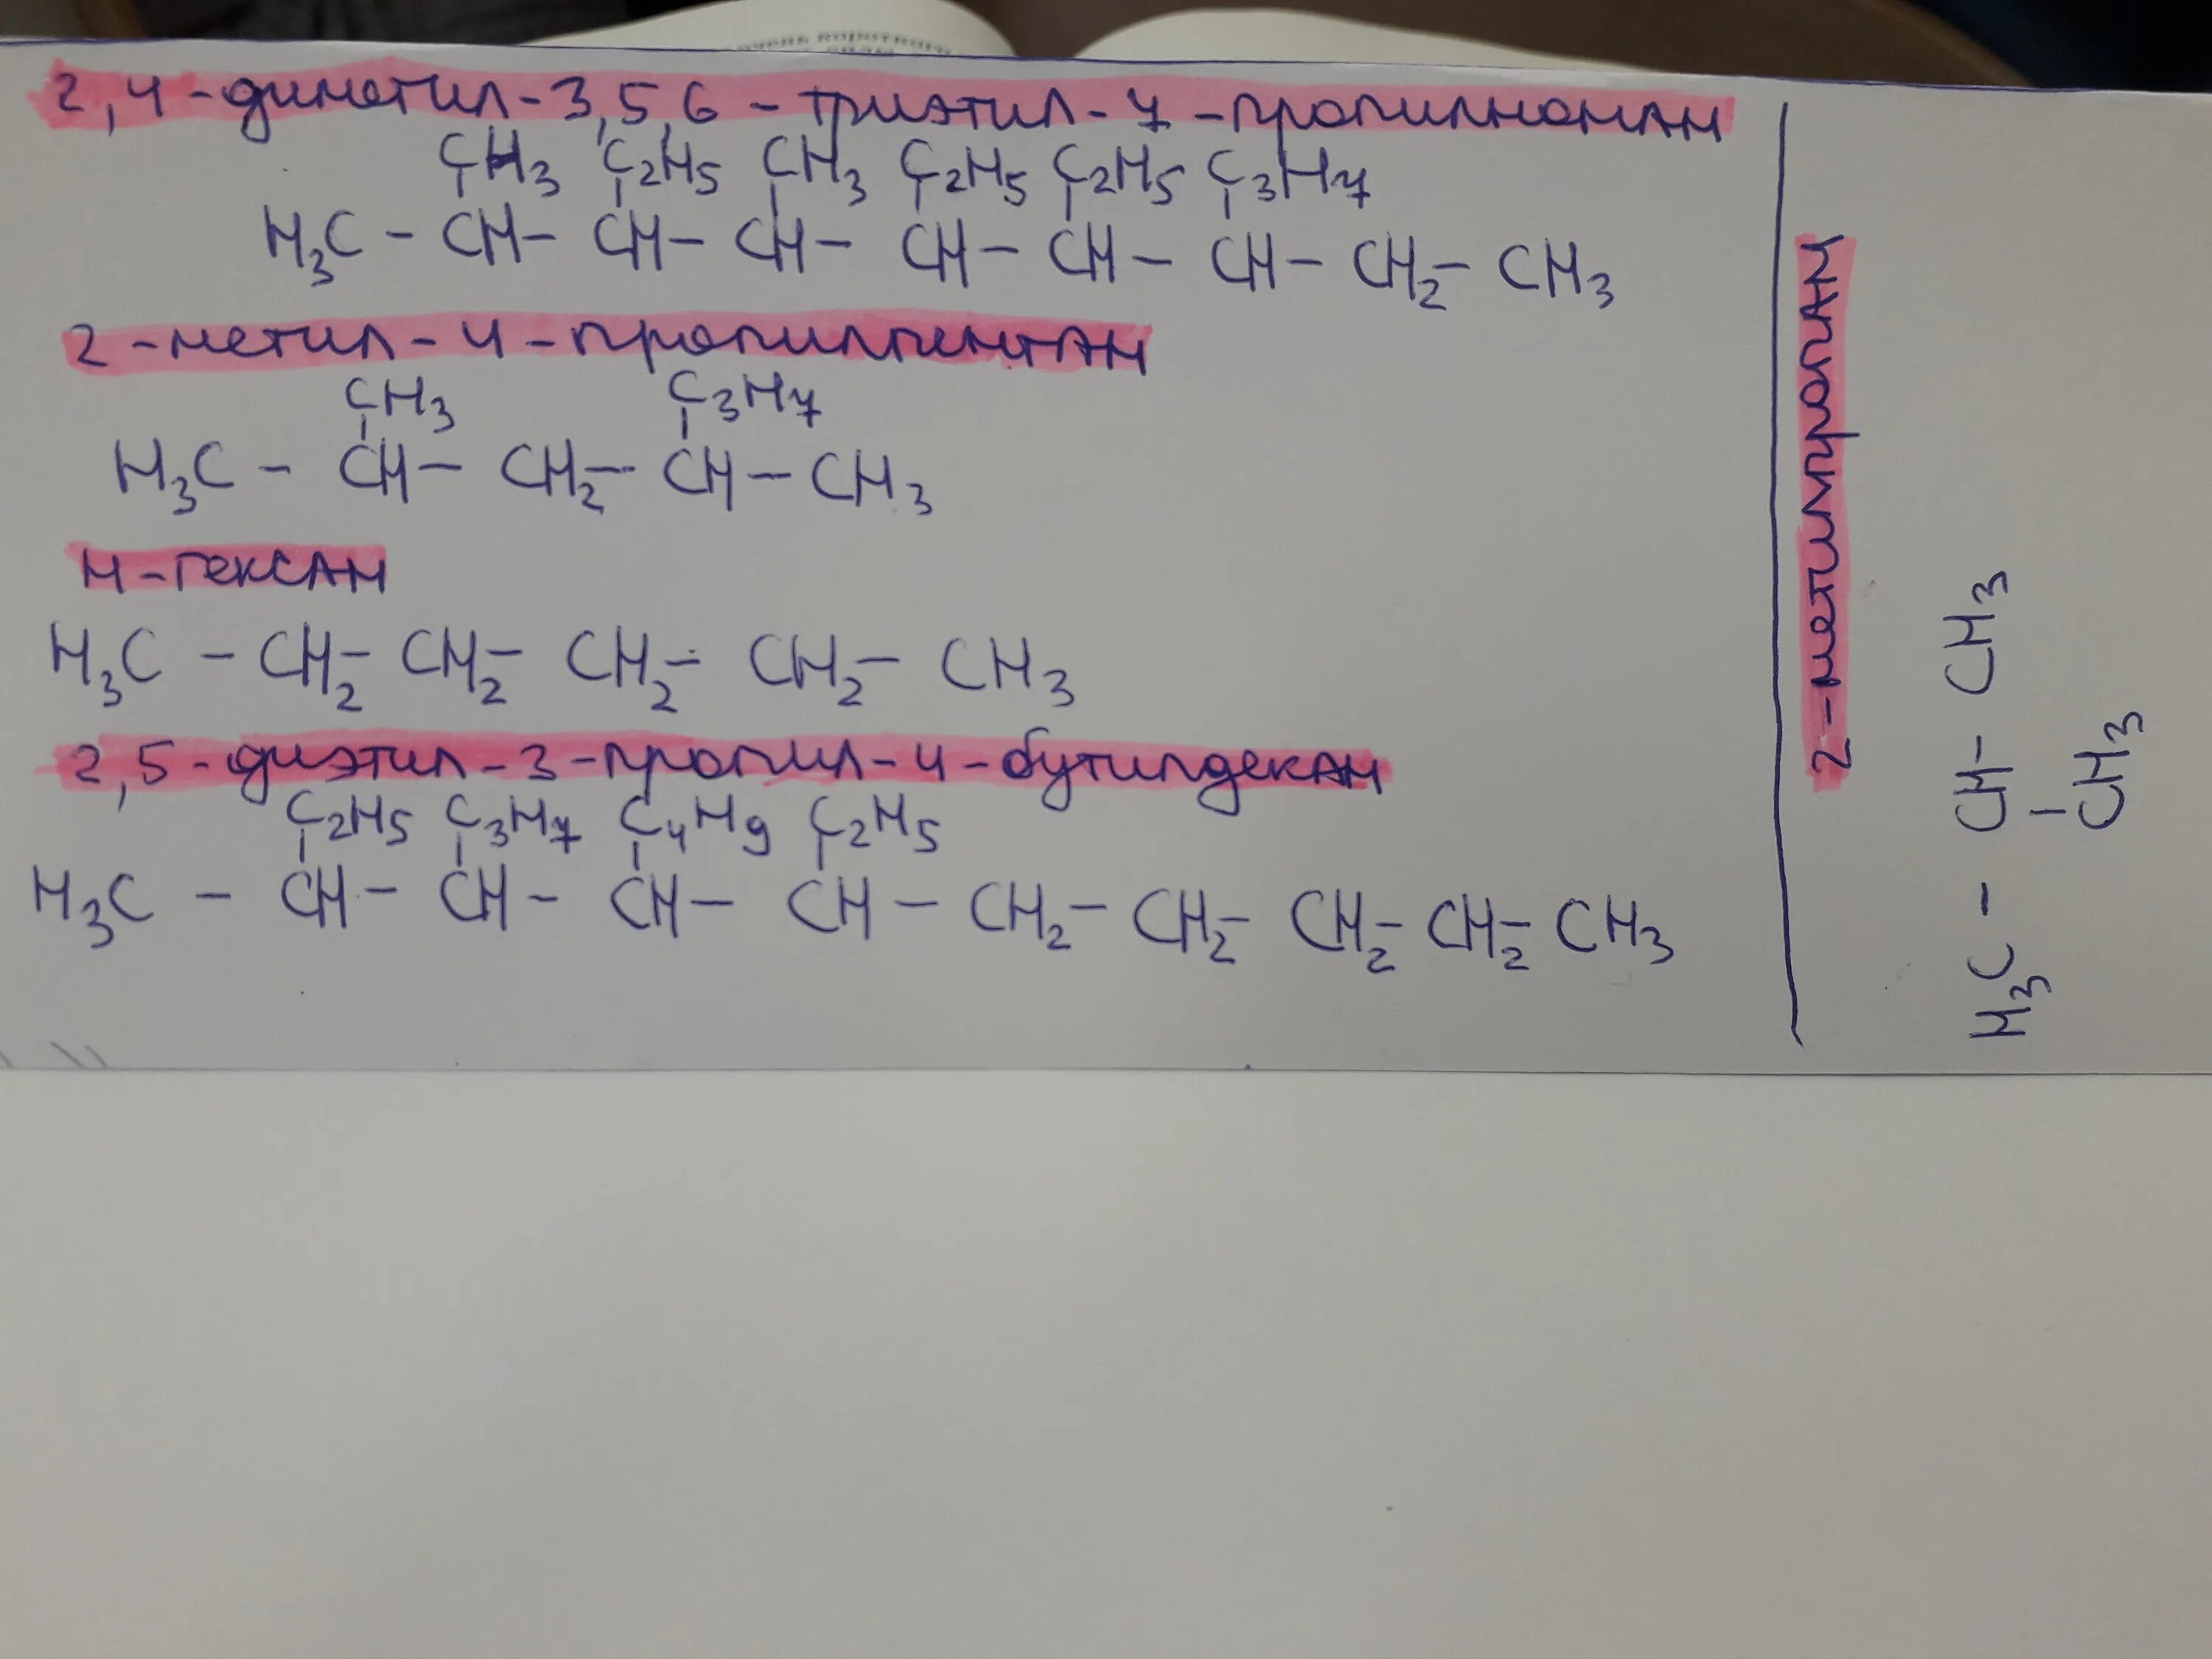 2,4-диметил-3,5,6-триэтил-7-пропилнонан
CH3 C2H5 CH3 C2H5 C2H5 C3H7
H3C - CH - CH - CH - CH - CH - CH - CH2 - CH3
2-метил-4-пропилпентан
CH3 C3H7
H3C - CH - CH2 - CH - CH3
н-гексан
H3C - CH2 - CH2 - CH2 - CH2 - CH3
2,5-диэтил-3-пропил-4-бутилдекан
C2H5 C3H7 C4H9 C2H5
H3C - CH - CH - CH - CH - CH2 - CH2 - CH2 - CH2 - CH3
2-метилпропан
H3C - CH - CH3
CH3